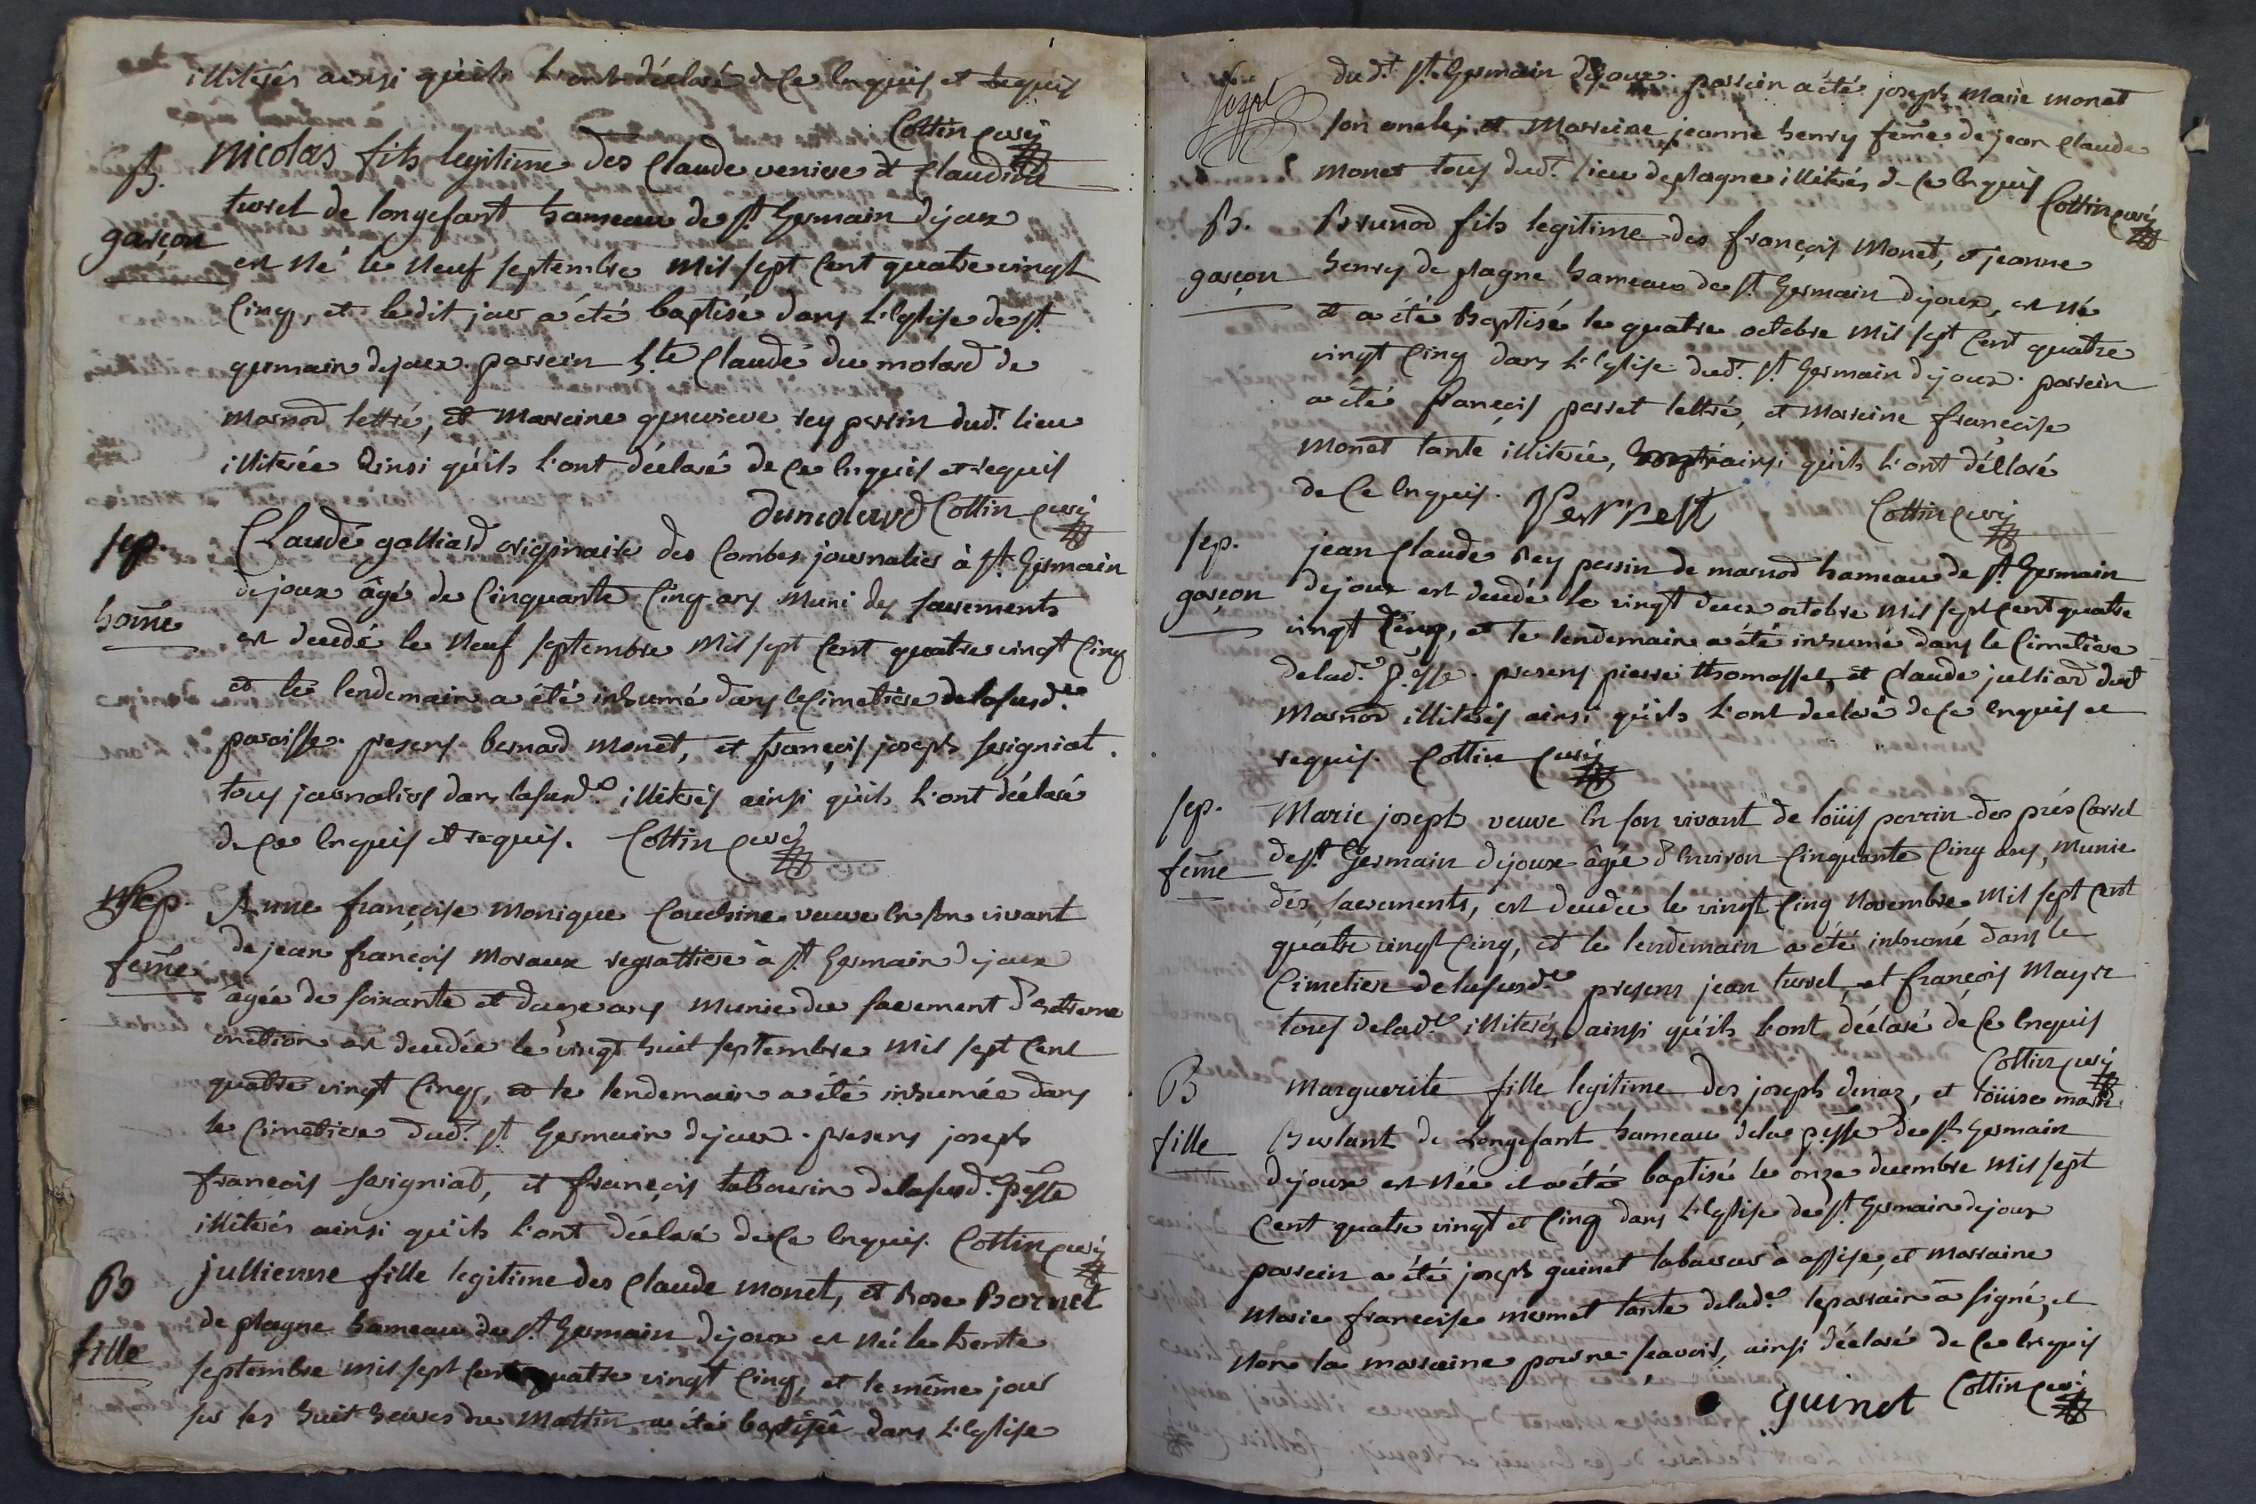 illiterés ainsi qu'ils l'ont déclaré de ce enquis et requis
Cottin curé
B. Nicolas fils legitime des Claude venive et Claudine
turrel de longefant hameau de st. Germain dejoux
garçon
est né le neuf septembre mil sept cent quatre vingt
cinq, et ledit jour a été baptisé dans l'Eglise de st.
germain dejoux. parrein Claude du molard de
marnod lettré, et marreine genevieve rey perrin dud.t lieu
illiterée ainsi qu'ils l'ont déclaré de ce enquis et requis
dumolard Cottin curé
sep. Claude galliard originaire des Combes journalier à st. Germain
dejoux âgé de cinquante cinq ans muni des sacrements
home
est decedé le neuf septembre mil sept cent quatre vingt cinq
et le lendemain a été inhumé dans le cimetiere de lasusd.e
paroisse. presens bernard monet, et françois joseph serigniat
tous journaliers dans lasusd.e illiterés ainsi qu'ils l'ont déclaré
de ce enquis et requis. Cottin curé
sep. Anne françoise monique veuve en son vivant
de jean françois moraux regrattiere à st. Germain dejoux
feme
âgée de soixante et douze ans munie du sacrement d'extreme
onction est decedée le vingt huit septembre mil sept cent
quatre vingt cinq, et le lendemain a été inhumée dans
le cimetiere dud.t st. Germain dejoux. presens joseph
francois serigniat, et françois tabourin de lasusd.e psse
illiterés ainsi qu'ils l'ont déclaré de ce enquis. Cottin curé
B jullienne fille légitime des Claude monet, et Rose Bornet
de plagne hameau de st. Germain dejoux est née le trente
fille
septembre mil sept cent quatre vingt cinq, et le même jour
sur les huit heures du mattin a été baptisée dans l'Eglise
dud.t st. Germain dejoux. parrein a été joseph marie monet
son oncle, et marreine jeanne henry feme de jean Claude
monet tous dud.t lieu de plagne illiterés de ce enquis
Cottin curé
B. Brunod fils legitime des françois monet, et jeanne
garçon henry de plagne hameau de st. Germain dejoux, est né
et a été Baptisé le quatre octobre mil sept cent quatre
vingt cinq dans l'Eglise dud.t st. Germain dejoux. parrein
a été françois perret lettré, et marreine francoise
monet tante illiterée, ainsi qu'ils l'ont déclaré
de ce enquis. Perret Cottin curé
sep. jean Claude Rey perrin de marnod hameau de st. Germain
garçon dejoux est decedé le vingt deux octobre mil sept cent quatre
vingt cinq, et le lendemain a été inhumé dans le cimetiere
de lad.e psse. presens pierre thomasset, et Claude julliard dud.t
marnod illiterés ainsi qu'ils l'ont declaré de ce enquis et
requis. Cottin curé
sep. Marie joseph veuve en son vivant de loüis perrin des prés
feme de st. Germain dejoux âgée d'environ cinquante cinq ans, munie
des sacrements, est decedée le vingt cinq novembre mil sept cent
quatre vingt cinq, et le lendemain a été inhumé dans le
cimetiere de lasusd.e presens jean turrel, et françois Mayre
tous de lad.e illiterés, ainsi qu'ils l'ont déclaré de ce enquis
Cottin curé
B Marguerite fille legitime des joseph denaz, et loüise marie
fille Burlant de Longefant hameau de la psse de st. Germain
dejoux est née et a été baptisé le onze decembre mil sept
cent quatre vingt et cinq dans l'Eglise de st. Germain dejoux
parrein a été joseph guinet laboureur à assise, et marraine
Marie francoise mermet tante de lad.e le parrain a signé, et
non la marraine pour ne scavoir, ainsi déclaré de ce enquis
guinet Cottin curé